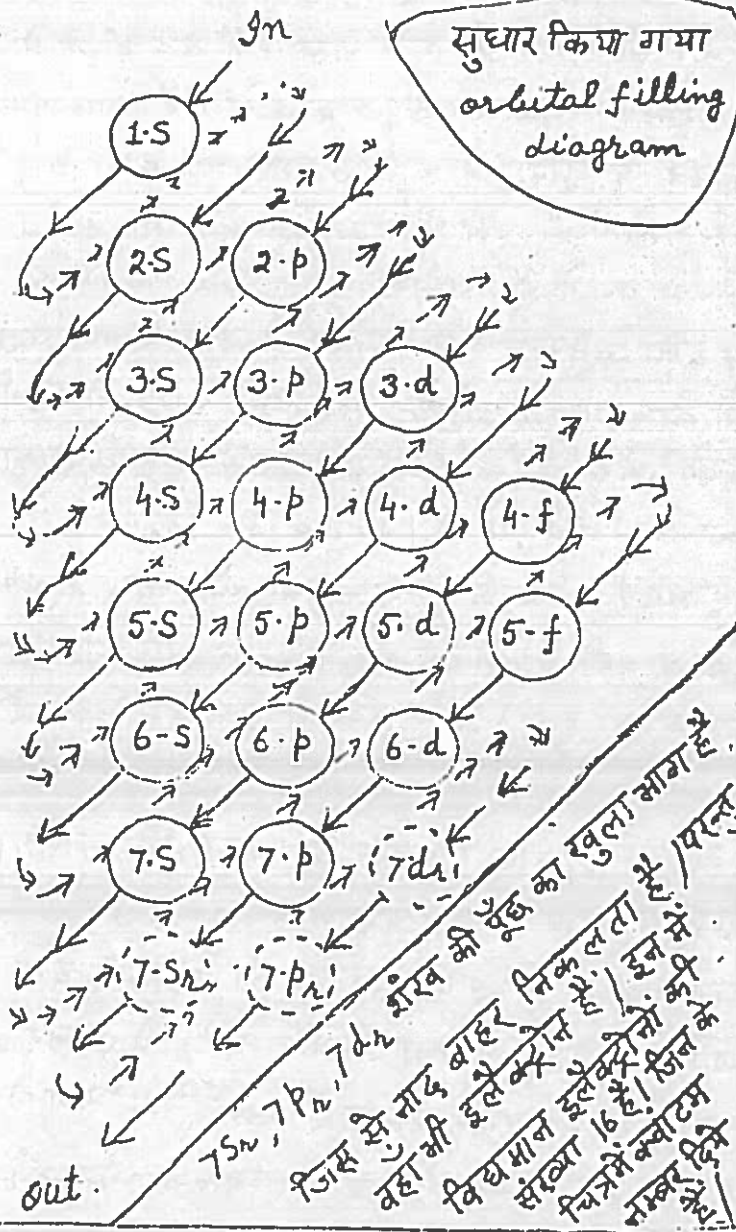 In
सुधार किया गया
orbital filling
diagram
1·S
2·S 2·p
3·S 3·p 3·d
4·S 4·p 4·d 4-f
5·S 5·p 5·d 5-f
6-S 6·p 6-d
7·S 7·p 7dn
7-Sn 7-pn
out.
7Sn, 7pn, 7dn शंख की पूँछ का खुला भाग है.
जिस से नाद बाहर निकलता है / परन्तु
वहां भी इलैक्ट्रान हैं / इन में
विद्यमान इलैक्ट्रोनों की
संख्या 16 है। जिन के
चित्रमें क्वांटम
नम्बर दिये